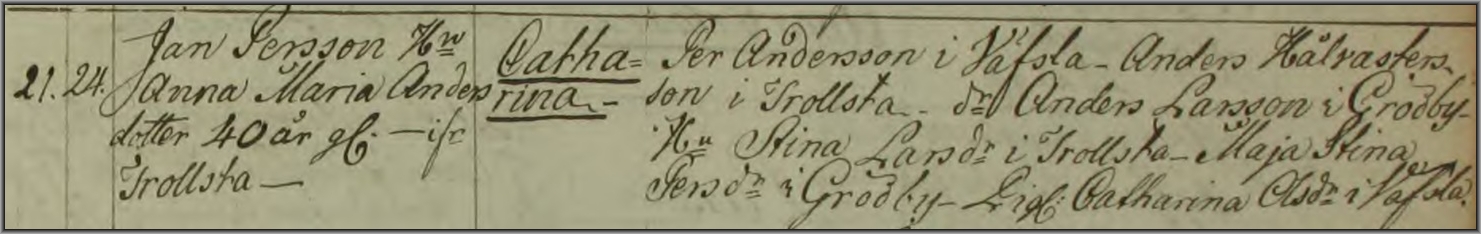 Jan Persson Hu
21. 24. Anna Maria Anders
dotter 40 år gl. — ifr
Trollsta —
Catha=
rina. –
Per Andersson i Väfsla – Anders Halvasters
son i Trollsta – dr Anders Larsson i Grödby –
Hu Stina Larsdr i Trollsta – Maja Stina
Persdr i Grödby – Pig: Catharina Olsdr i Väfsla.